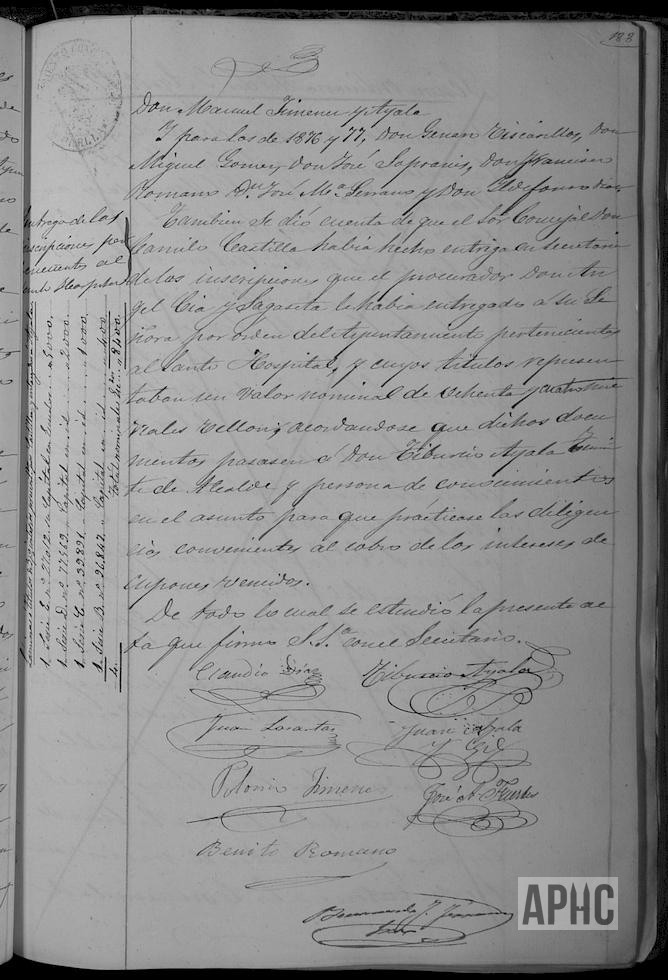 183
Don Manuel Jimenez y Ayala
Y para los de 1876 y 77, Don Genaro Viscasillas, Don
Miguel Gomez, Don José Sopranis, Don Francisco
Romano Dn José Mª Serrano y Don Ildefonso Diaz
Tambien se dió cuenta de que el Sor Concejal Don
Camilo Castilla habia hecho entrega en secretaria
de las inscripciones que el procurador Don An
gel Cia y Sagaseta le habia entregado a su Se
ñora por orden del Ayuntamiento pertenecientes
al santo Hospital, y cuyos titulos represen
taban un valor nominal de ochenta y cuatro mil
reales vellon; acordandose que dichos docu
mentos pasasen a Don Tiburcio Ayala Tenien
te de Alcalde y persona de conocimientos
en el asunto para que practicase las diligen
cias convenientes al cobro de los intereses de
cupones vencidos.
De todo lo cual se estendió la presente ac
ta que firma S.Sª con el Secretario.
Entrega de las
inscripciones per
tenecientes al
santo Hospital
1. Serie E. nº 27012
1. Serie D. nº 77.569
1. Serie C. nº 39831
1. Serie B. nº 26842
Claudio Diaz
Tiburcio Ayala
Juan Lasanta
Juan Ayala
y Gil
Polonio Jimenez
José A. Fuertes
Benito Romano
APHC